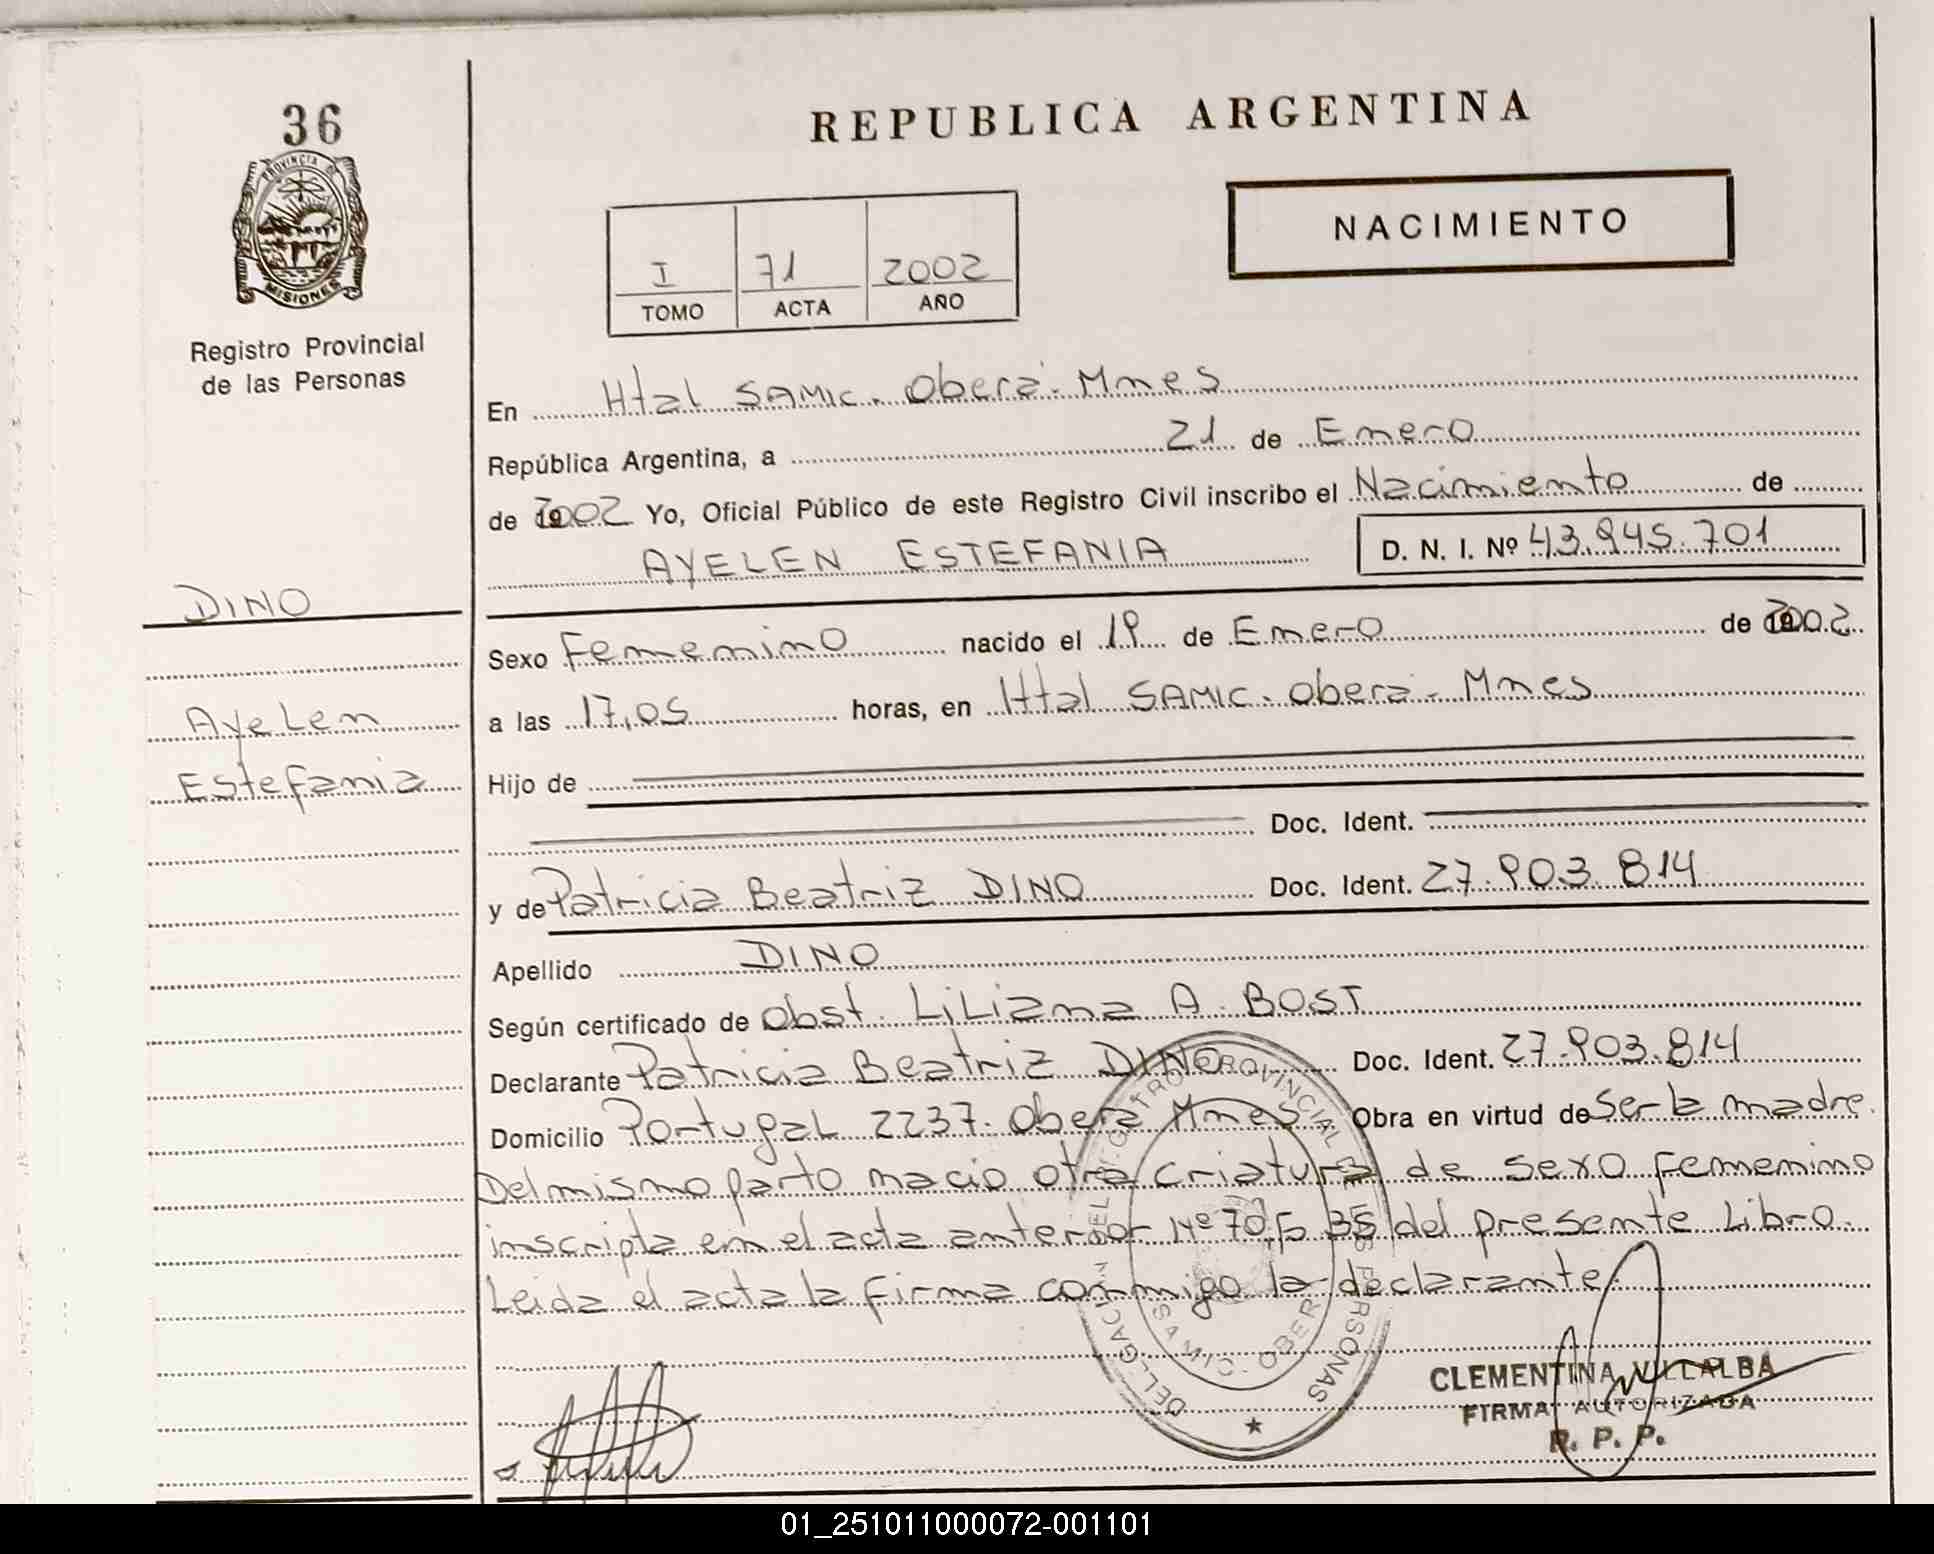 36
PROVINCIA DE
MISIONES
Registro Provincial
de las Personas
REPUBLICA ARGENTINA
NACIMIENTO
I 71 2002
TOMO ACTA AÑO
En Htal SAMIC. Oberá. Mnes
República Argentina, a 21 de Enero
de 2002 Yo, Oficial Público de este Registro Civil inscribo el Nacimiento de
AYELEN ESTEFANIA D. N. I. Nº 43.945.701
DINO
Sexo Femenino nacido el 19 de Enero de 2002
Ayelen
a las 17,05 horas, en Htal SAMIC. Oberá. Mnes
Estefania
Hijo de
Doc. Ident.
y de Patricia Beatriz DINO Doc. Ident. 27.903.814
Apellido DINO
Según certificado de Obst. Liliana A. BOST
Declarante Patricia Beatriz DINO Doc. Ident. 27.903.814
Domicilio Portugal 2237. Oberá Mnes Obra en virtud de ser la madre.
Del mismo parto nacio otra criatura de sexo femenino
inscripta en el acta anterior Nº 70, Fº 35 del presente Libro.
Leida el acta la firma conmigo la declarante.
DELEGACION DEL REGISTRO PROVINCIAL DE LAS PERSONAS
SAMIC - OBERA
CLEMENTINA VILLALBA
FIRMA AUTORIZADA
R. P. P.
01_251011000072-001101